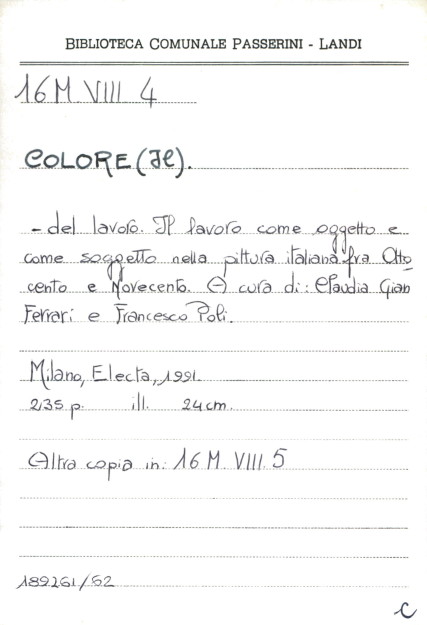 BIBLIOTECA COMUNALE PASSERINI - LANDI
16 M VIII 4
COLORE (Il).
- del lavoro. Il lavoro come oggetto e
come soggetto nella pittura italiana fra Otto
cento e Novecento. A cura di: Claudia Gian
Ferrari e Francesco Poli.
Milano, Electa, 1991.
235 p. ill. 24 cm.
Altra copia in: 16 M VIII. 5
189261/62
C